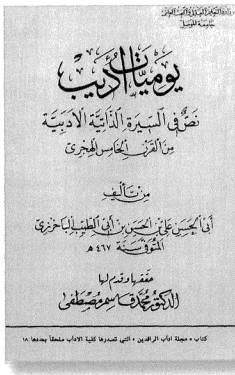 وزارة التعليم العالي والبحث العلمي
جامعة الموصل
يوميات الأديب
نص في السيرة الذاتية الأدبية
من القرن الخامس الهجري
من تأليف
أبي الحسن علي بن الحسن بن أبي الطيب الباخرزي
المتوفى سنة ٤٦٧ هـ
حققها وقدم لها
الدكتور محمد قاسم مصطفى
كتاب • مجلة آداب الرافدين • التي تصدرها كلية الآداب ملحقا بعددها ١٨